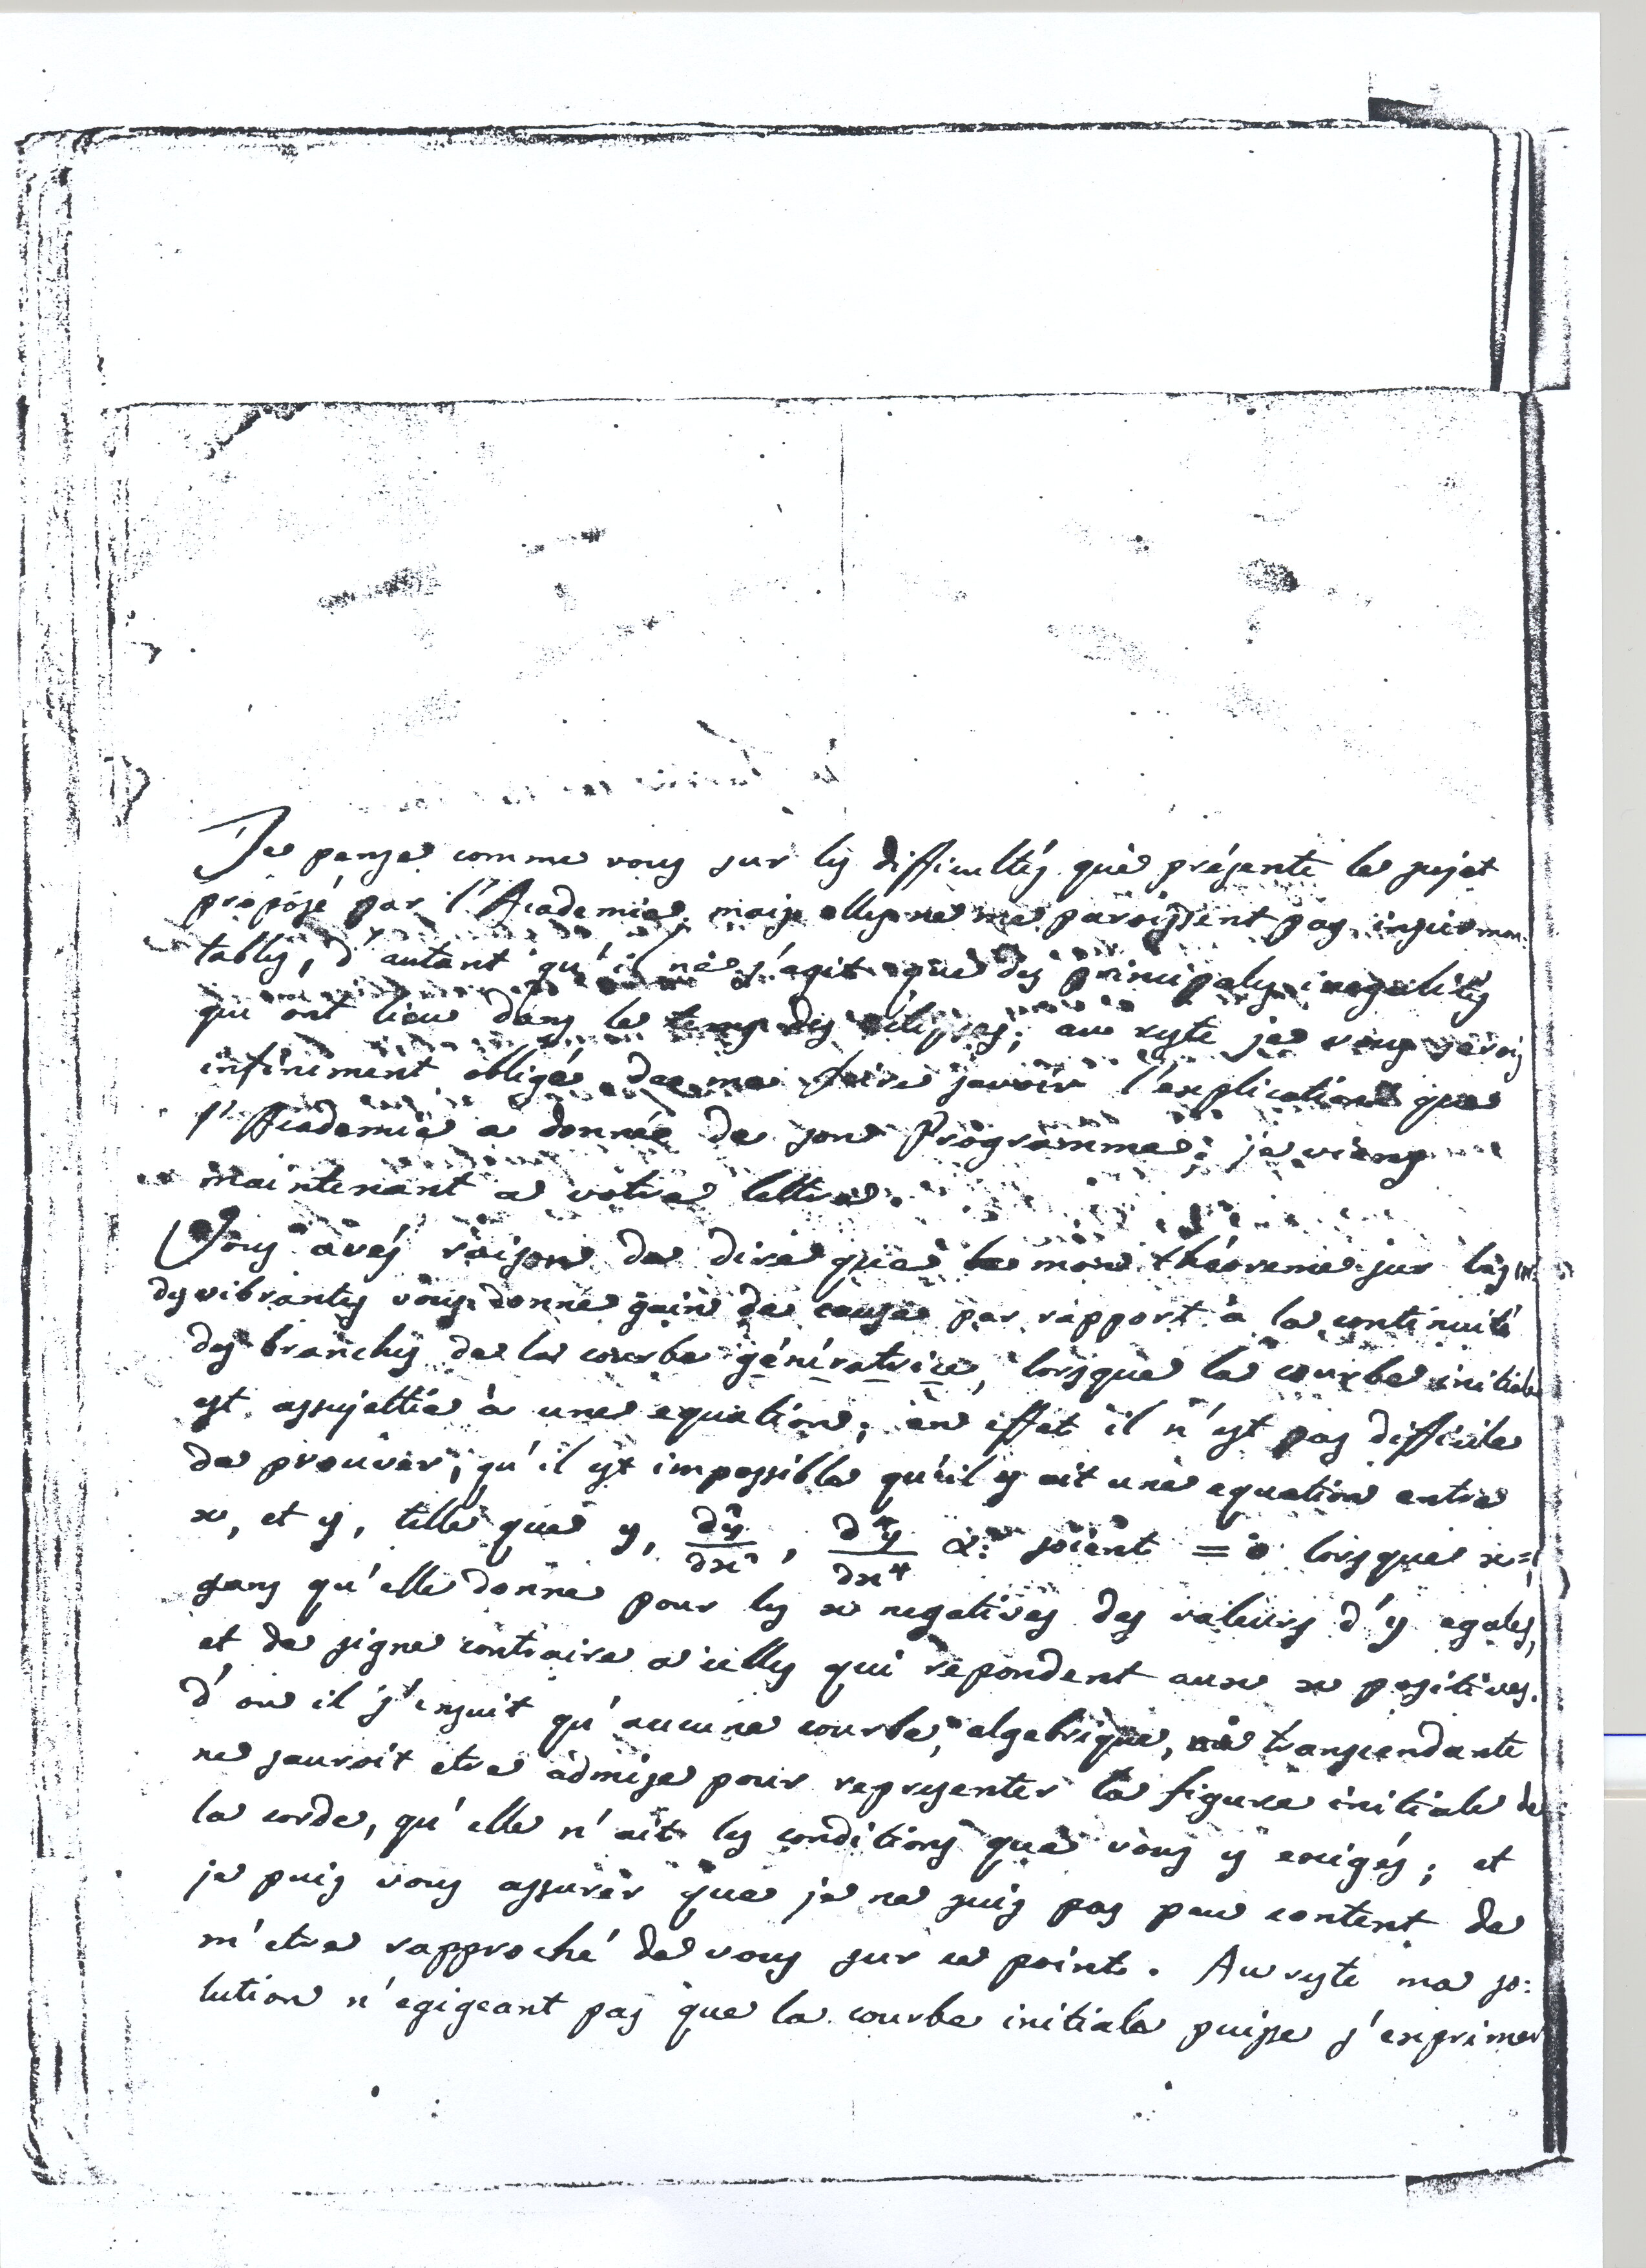 Je pense comme vous sur les difficultés que présente le sujet
proposé par l'Academie, mais elles ne me paroissent pas insurmon:
tables, d'autant qu'il ne s'agit que des principales inegalités
qui ont lieu dans le temps des éclipses; au reste je vous serois
infiniment obligé de me faire savoir l'explication que
l'Academie a donnée de son Programme; je viens
maintenant a votre lettre.
Vous avés raison de dire que mon théoreme sur les cor:
des vibrantes vous donne gain de cause par rapport à la continuité
des branches de la courbe génératrice, lorsque la courbe initiale
est assujettie à une equation; en effet il n'est pas difficile
de prouver, qu'il est impossible qu'il y ait une equation entre
x, et y, telle que y, d²y/dx², d⁴y/dx⁴ &c. soient = 0 lorsque x=
sans qu'elle donne pour les x negatives des valeurs d'y egales,
et de signe contraire a celles qui repondent aux x positives.
d'ou il s'ensuit qu'aucune courbe, algebrique, transcendante
ne sauroit etre admise pour representer la figure initiale de
la corde, qu'elle n'ait les conditions que vous y exigés; et
je puis vous assurer que je ne suis pas peu content de
m'etre rapproché de vous sur ce point. Au reste ma so:
lution n'egigeant pas que la courbe initiale puisse s'exprimer